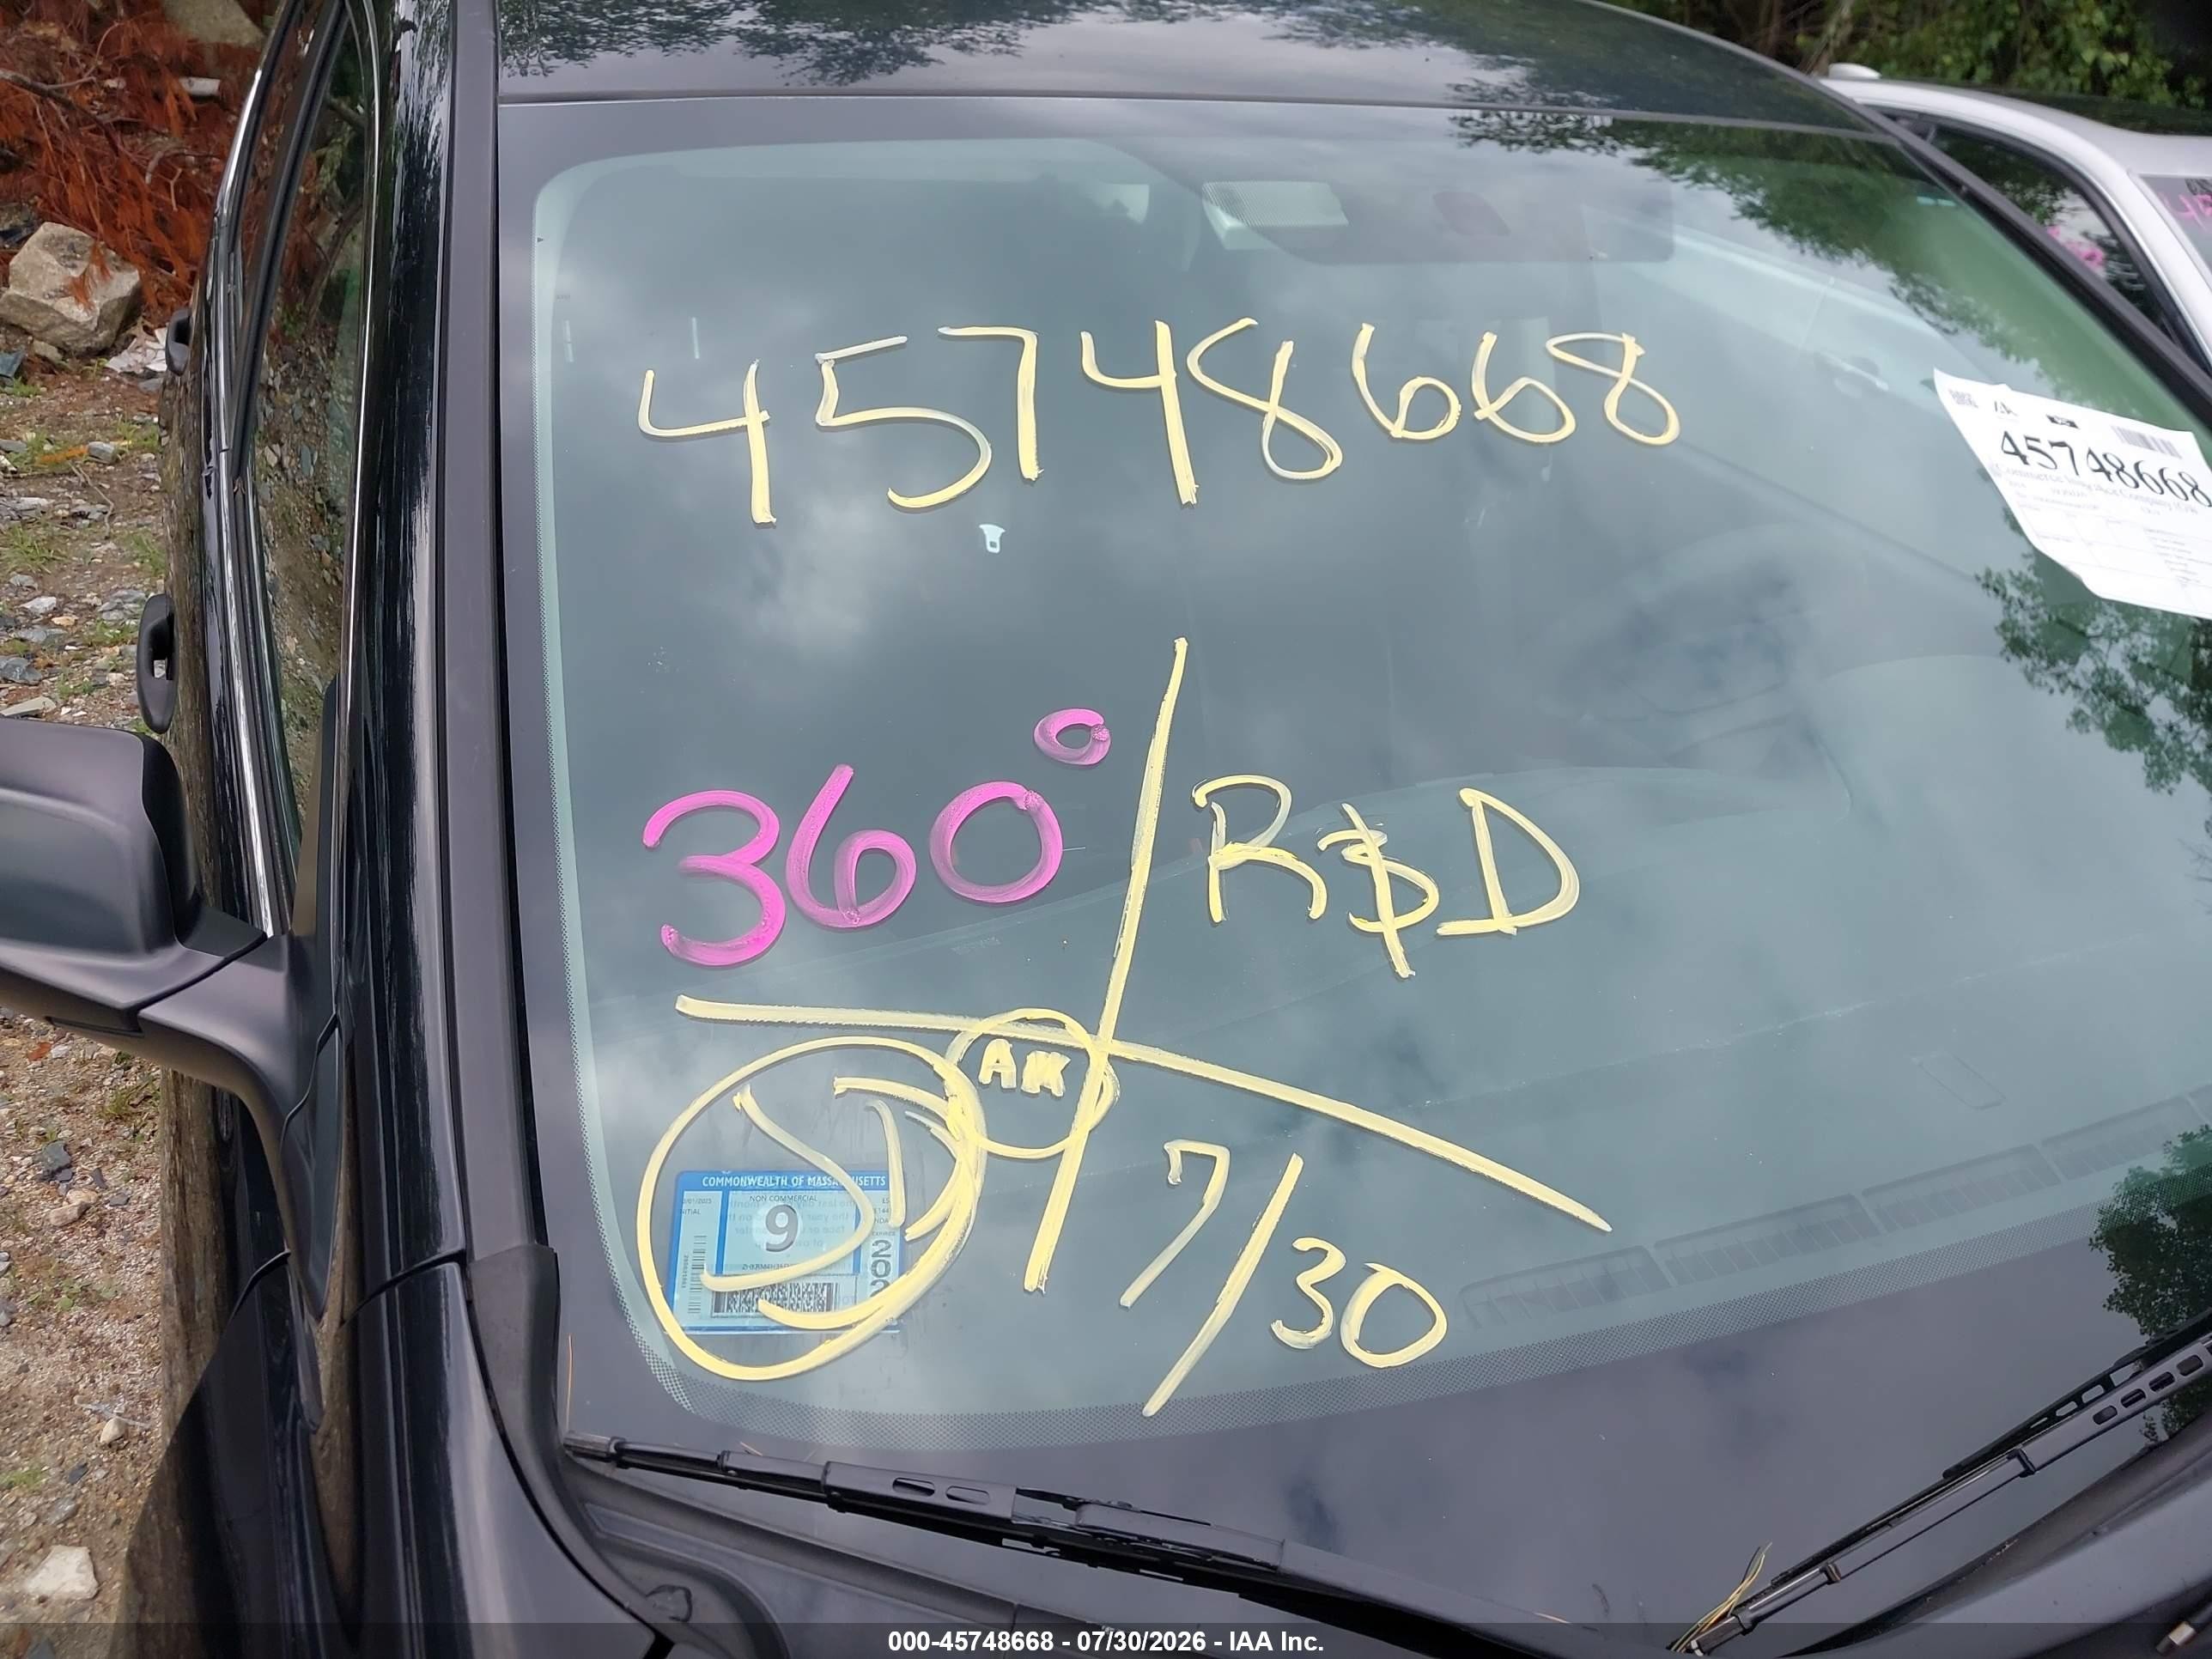 45748668
45748668
360° / R&D
AK
SD
7/30
COMMONWEALTH OF MASSACHUSETTS
NON COMMERCIAL
9
202
000-45748668 - 07/30/2026 - IAA Inc.